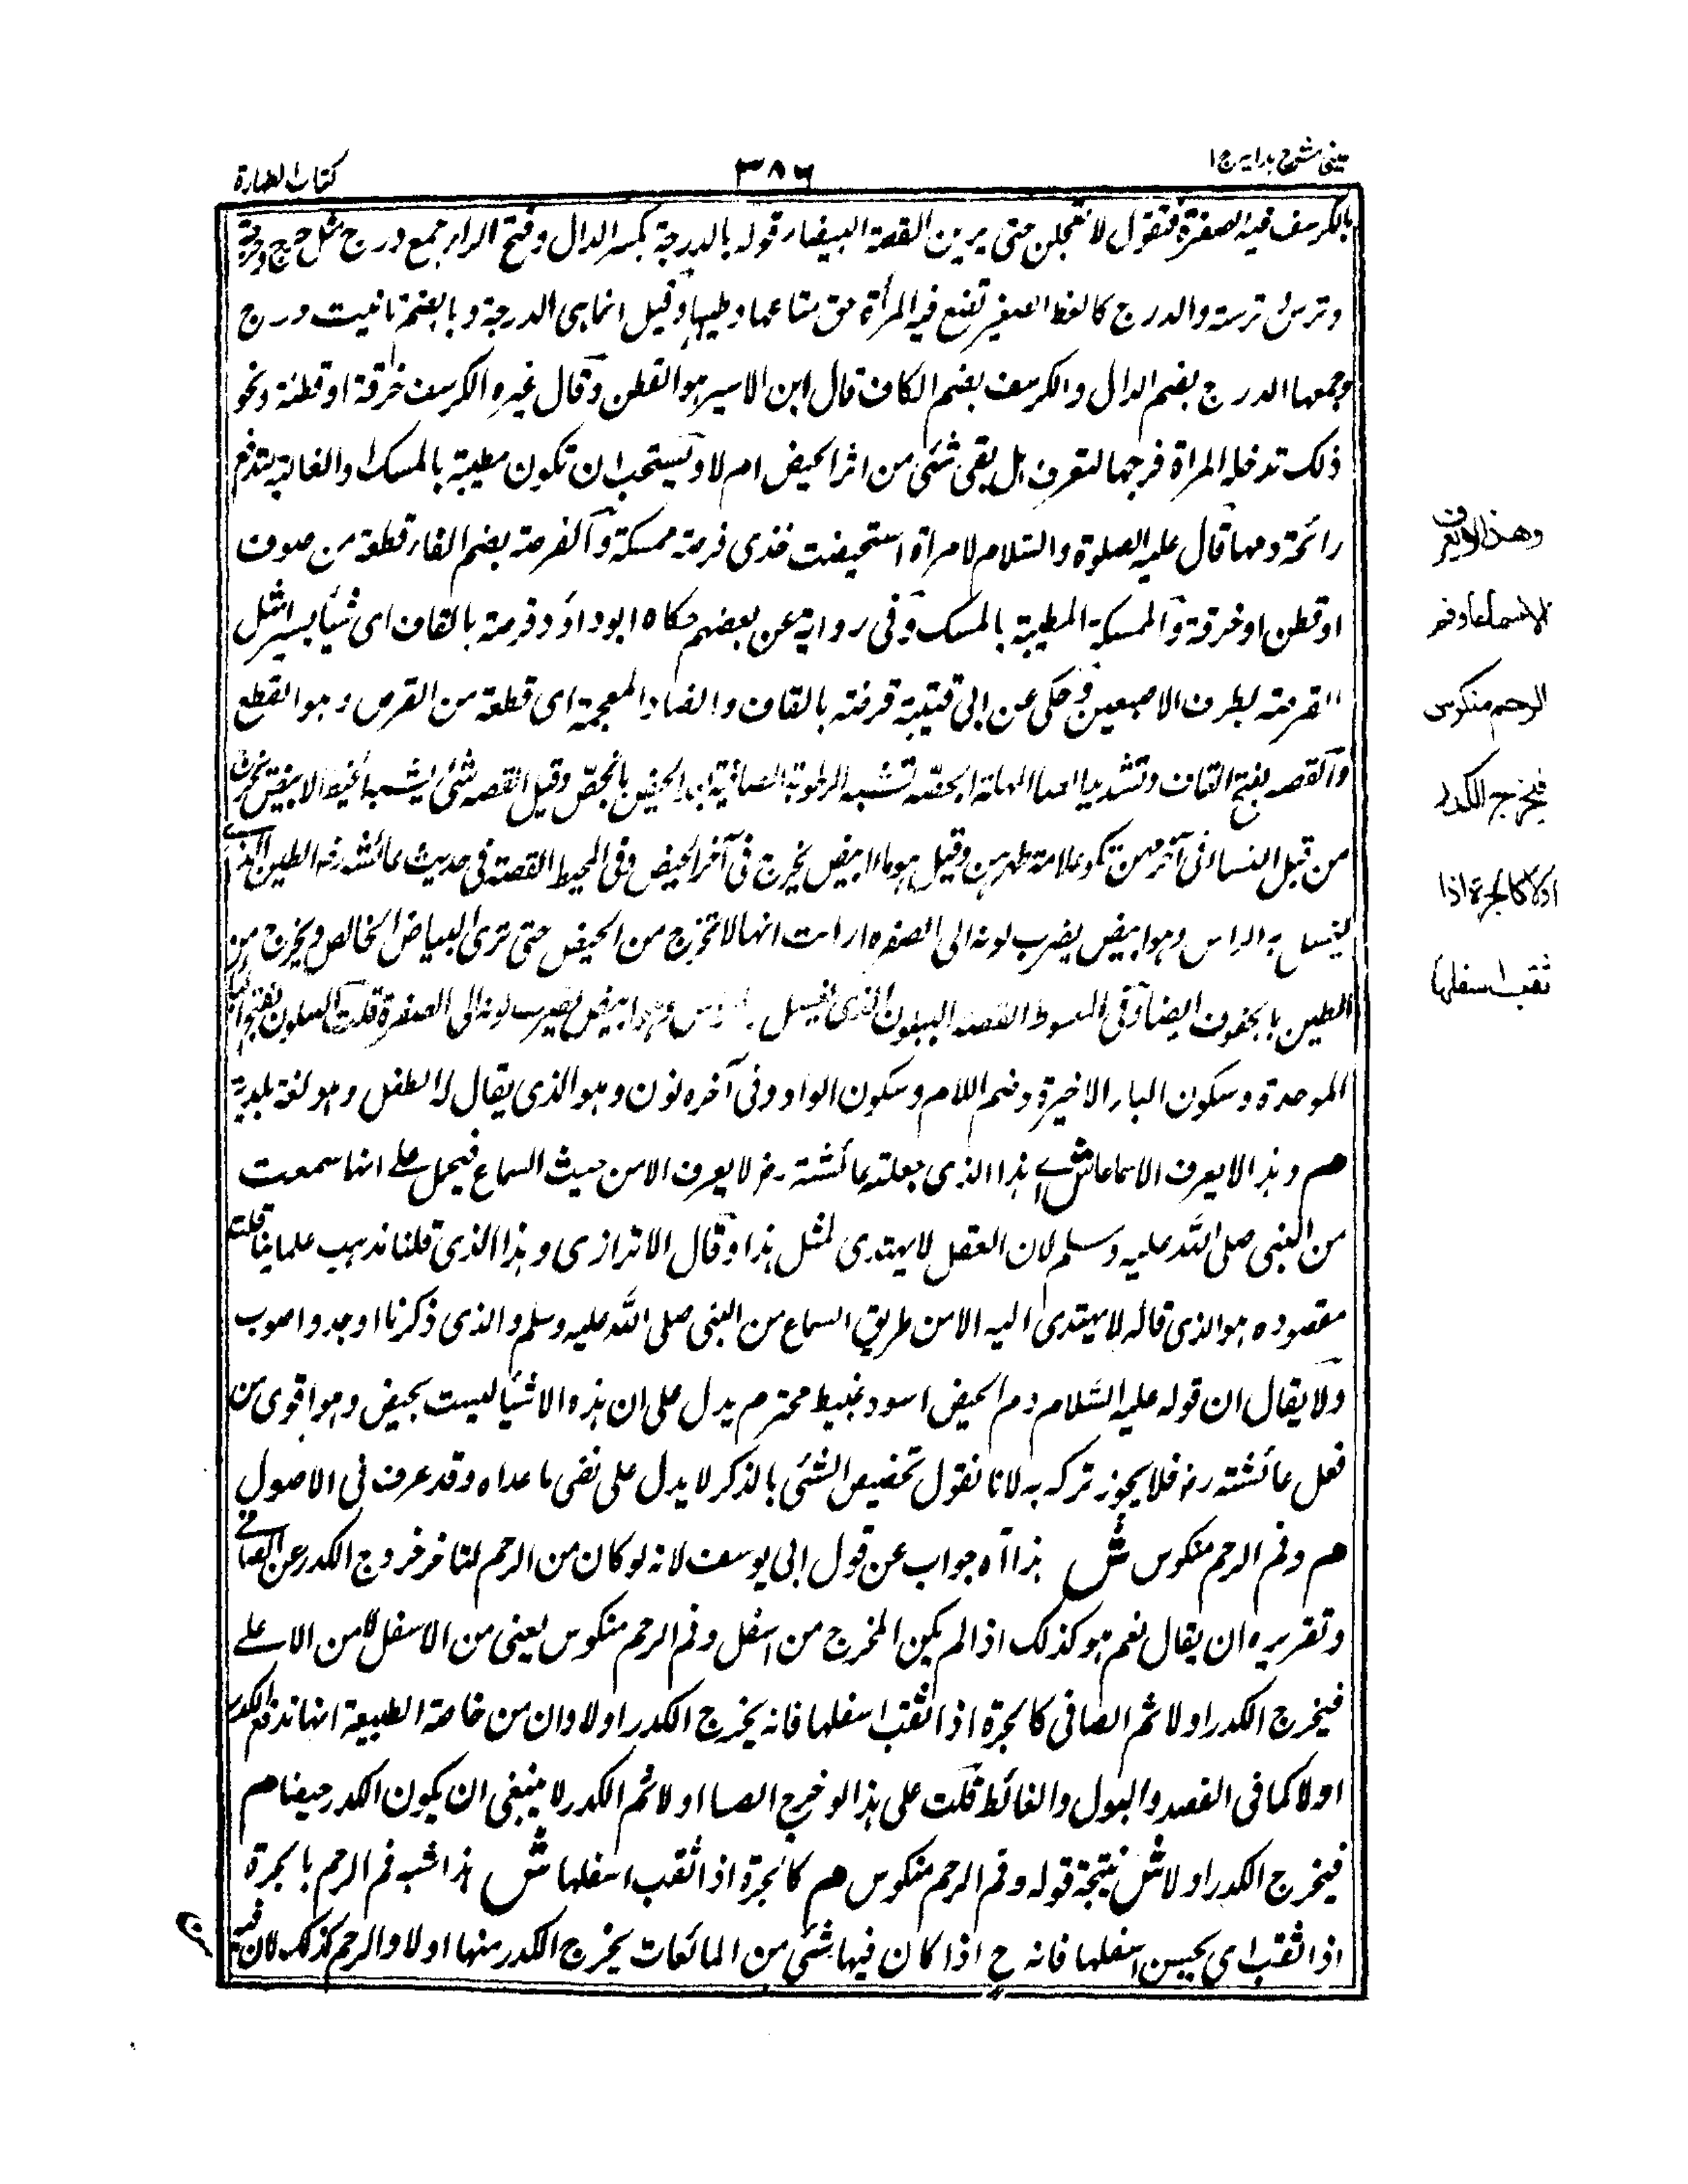 عینی شرح ہدایہ ج ۱
۳۸۶
کتاب الطہارة
بالکرسف فیہ الصفرة فتقول لا تعجلن حتی ترین القصة البیضاء قولہ بالدرجة بکسر الدال وفتح الراء جمع درج مثل خرج وخرجة
وترس وترسة والدرج کالسفط الصغیر تضع فیہ المرأة حق متاعہا وطیبہا وقیل انما ہی الدرجة وبالضم تانیث درج
وجمعہا الدرج بضم الدال والکرسف بضم الکاف قال ابن الاسیر ہو القطن وقال غیرہ الکرسف خرقة او قطنة ونحو
ذلک تدخلہ المراة فرجہا لتعرف ہل بقی شئی من اثر الحیض ام لا ویستحب ان تکون مطیبة بالمسک او الغالیة لتدفع
رائحة دمہا قال علیہ الصلوة والسلام لامراة استحیضت خذی فرصة ممسکة والفرصة بضم الفاء قطعة من صوف
او قطن او خرقة والممسکة المطیبة بالمسک وفی روایة عن بعضہم حکاہ ابو داؤد قرصة بالقاف ای شیأ یسیرا مثل
القرصة بطرف الاصبعین وحکی عن ابی قتیبة قرضة بالقاف والضاد المعجمة ای قطعة من القرض وہو القطع
والقصہ بفتح القاف وتشدید الصاد المہملة الجصّہ تشبہ الرطوبة الصافیة بعد الحیض بالجصّ وقیل القصہ شئی یشبہ الخیط الابیض یخرج
من قبل النساء فی آخر حیضہن تکون علامة طہرہن وقیل ہو ماء ابیض یخرج فی آخر الحیض وفی المحیط القصة فی حدیث عائشة رضہ الطین الذی
یغسل بہ الراس وہو ابیض یضرب لونہ الی الصفرہ ارادت انہا لا تخرج من الحیض حتی تری البیاض الخالص ویخرج من
الطین بالجفوف ایضا وفی المبسوط القصة الطین الذی یغسل بہ الراس وہو ابیض یضرب لونہ الی الصفرة قلت
الموحدة وسکون الیاء الاخیرة وضم اللام وسکون الواو وفی آخرہ نون وہو الذی یقال لہ الطفل وہو لغة بلدیة
ھم وہذا لا یعرف الا سماعا ش ای ہذا الذی جعلتہ عائشة رضہ لا یعرف الا من حیث السماع فیحمل علے انہا سمعت
من النبی صلی اللّٰہ علیہ وسلم لان العقل لا یہتدی لمثل ہذا وقال الاترازی وہذا الذی قلنا مذہب علماینا قلت
مقصودہ ہو الذی قالہ لا یہتدی الیہ الا من طریق السماع من النبی صلی اللّٰہ علیہ وسلم والذی ذکرنا اوجہ واصوب
ولا یقال ان قولہ علیہ السّلام دم الحیض اسود عبیط محترم یدل علی ان ہذہ الاشیا لیست بحیض وہو اقوی من
فعل عائشة رضہ فلا یجوز ترکہ بہ لانا نقول تخصیص الشئی بالذکر لا یدل علی نفی ما عداہ وقد عرف فی الاصول
ھم وفم الرحم منکوس ش ہذا آہ جواب عن قول ابی یوسف لانہ لو کان من الرحم لتاخر خروج الکدر عن الصافے
وتقریرہ ان یقال نعم ہو کذلک اذا لم یکن المخرج من اسفل وفم الرحم منکوس یعنی من الاسفل لا من الاعلے
فیخرج الکدر اولا ثم الصافی کالجرة اذا ثقب اسفلہا فانہ یخرج الکدر اولا وان من خاصة الطبیعة انہا تدفع الکدر
اولا کما فی الفصد والبول والغائط قلت علی ہذا لو خرج الصا اولا ثم الکدر لا ینبغی ان یکون الکدر حیضا ھم
فیخرج الکدر اولا ش نتیجة قولہ وفم الرحم منکوس ھم کالجرة اذا ثقب اسفلہا ش ہذا شبہ فم الرحم بالجرة
اذا ثقب ای یحبس اسفلہا فانہ ح اذا کان فیہا شئی من المائعات یخرج الکدر منہا اولا والرحم کذلک لان فیہ
وھذا لا یعرف
الا سماعا وفم
الرحم منکوس
فیخرج الکدر
اولا کالجرة اذا
ثقب اسفلہا